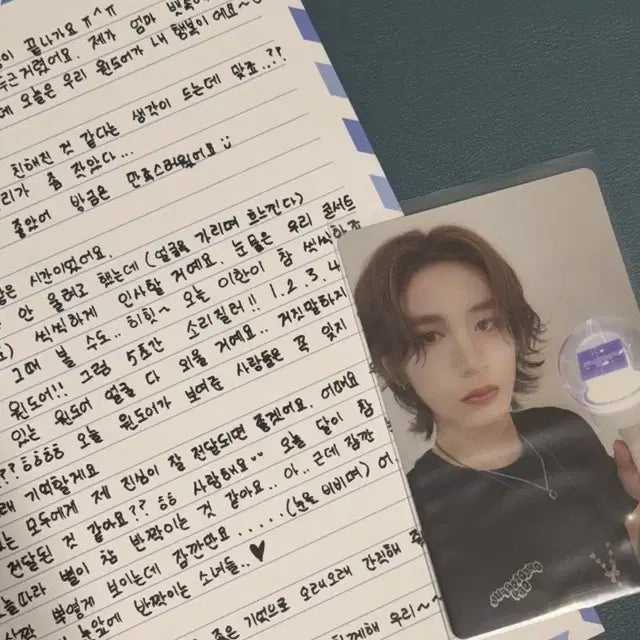 이 끝나가요 ㅠ^ㅠ
두근거렸어요. 제가 엄마
데 오늘은 우리 원도어가 내 행복이 어요~
친해진 것 같다는 생각이 드는데 맞죠..??
리가 좀 잦았다...
좋았어 방금은 만족스러웠어요
은 시간이었어요.
안 울려고 했는데 (얼굴을 가리며 흐느낀다)
씩씩하게 인사할 거예요. 눈물은 우리 콘서트
그때 볼 수도.. 히힛~ 오늘 이한이 참 씩씩하죠
원도어!! 그럼 5초간 소리질러!! 1. 2. 3. 4.
있는 원도어 얼굴 다 외울 거예요.. 거짓말하지
?? ㅎㅎㅎㅎ 오늘 원도어가 보여준 사랑들은 꼭 잊지
래 기억할게요
는 모두에게 제 진심이 잘 전달되면 좋겠어요. 어때요
전달된 것 같아요?? ㅎㅎ 사랑해요.. 오늘 달이 참
늘따라 별이 참 반짝이는 것 같아요.. 아.. 근데 잠깐
뿌옇게 보이는데 잠깐만요..... (눈을 비비며) 어
눈앞에 반짝이는 소녀들.. ♥
좋은 기억으로 오래오래 간직해
함께해 우리~~